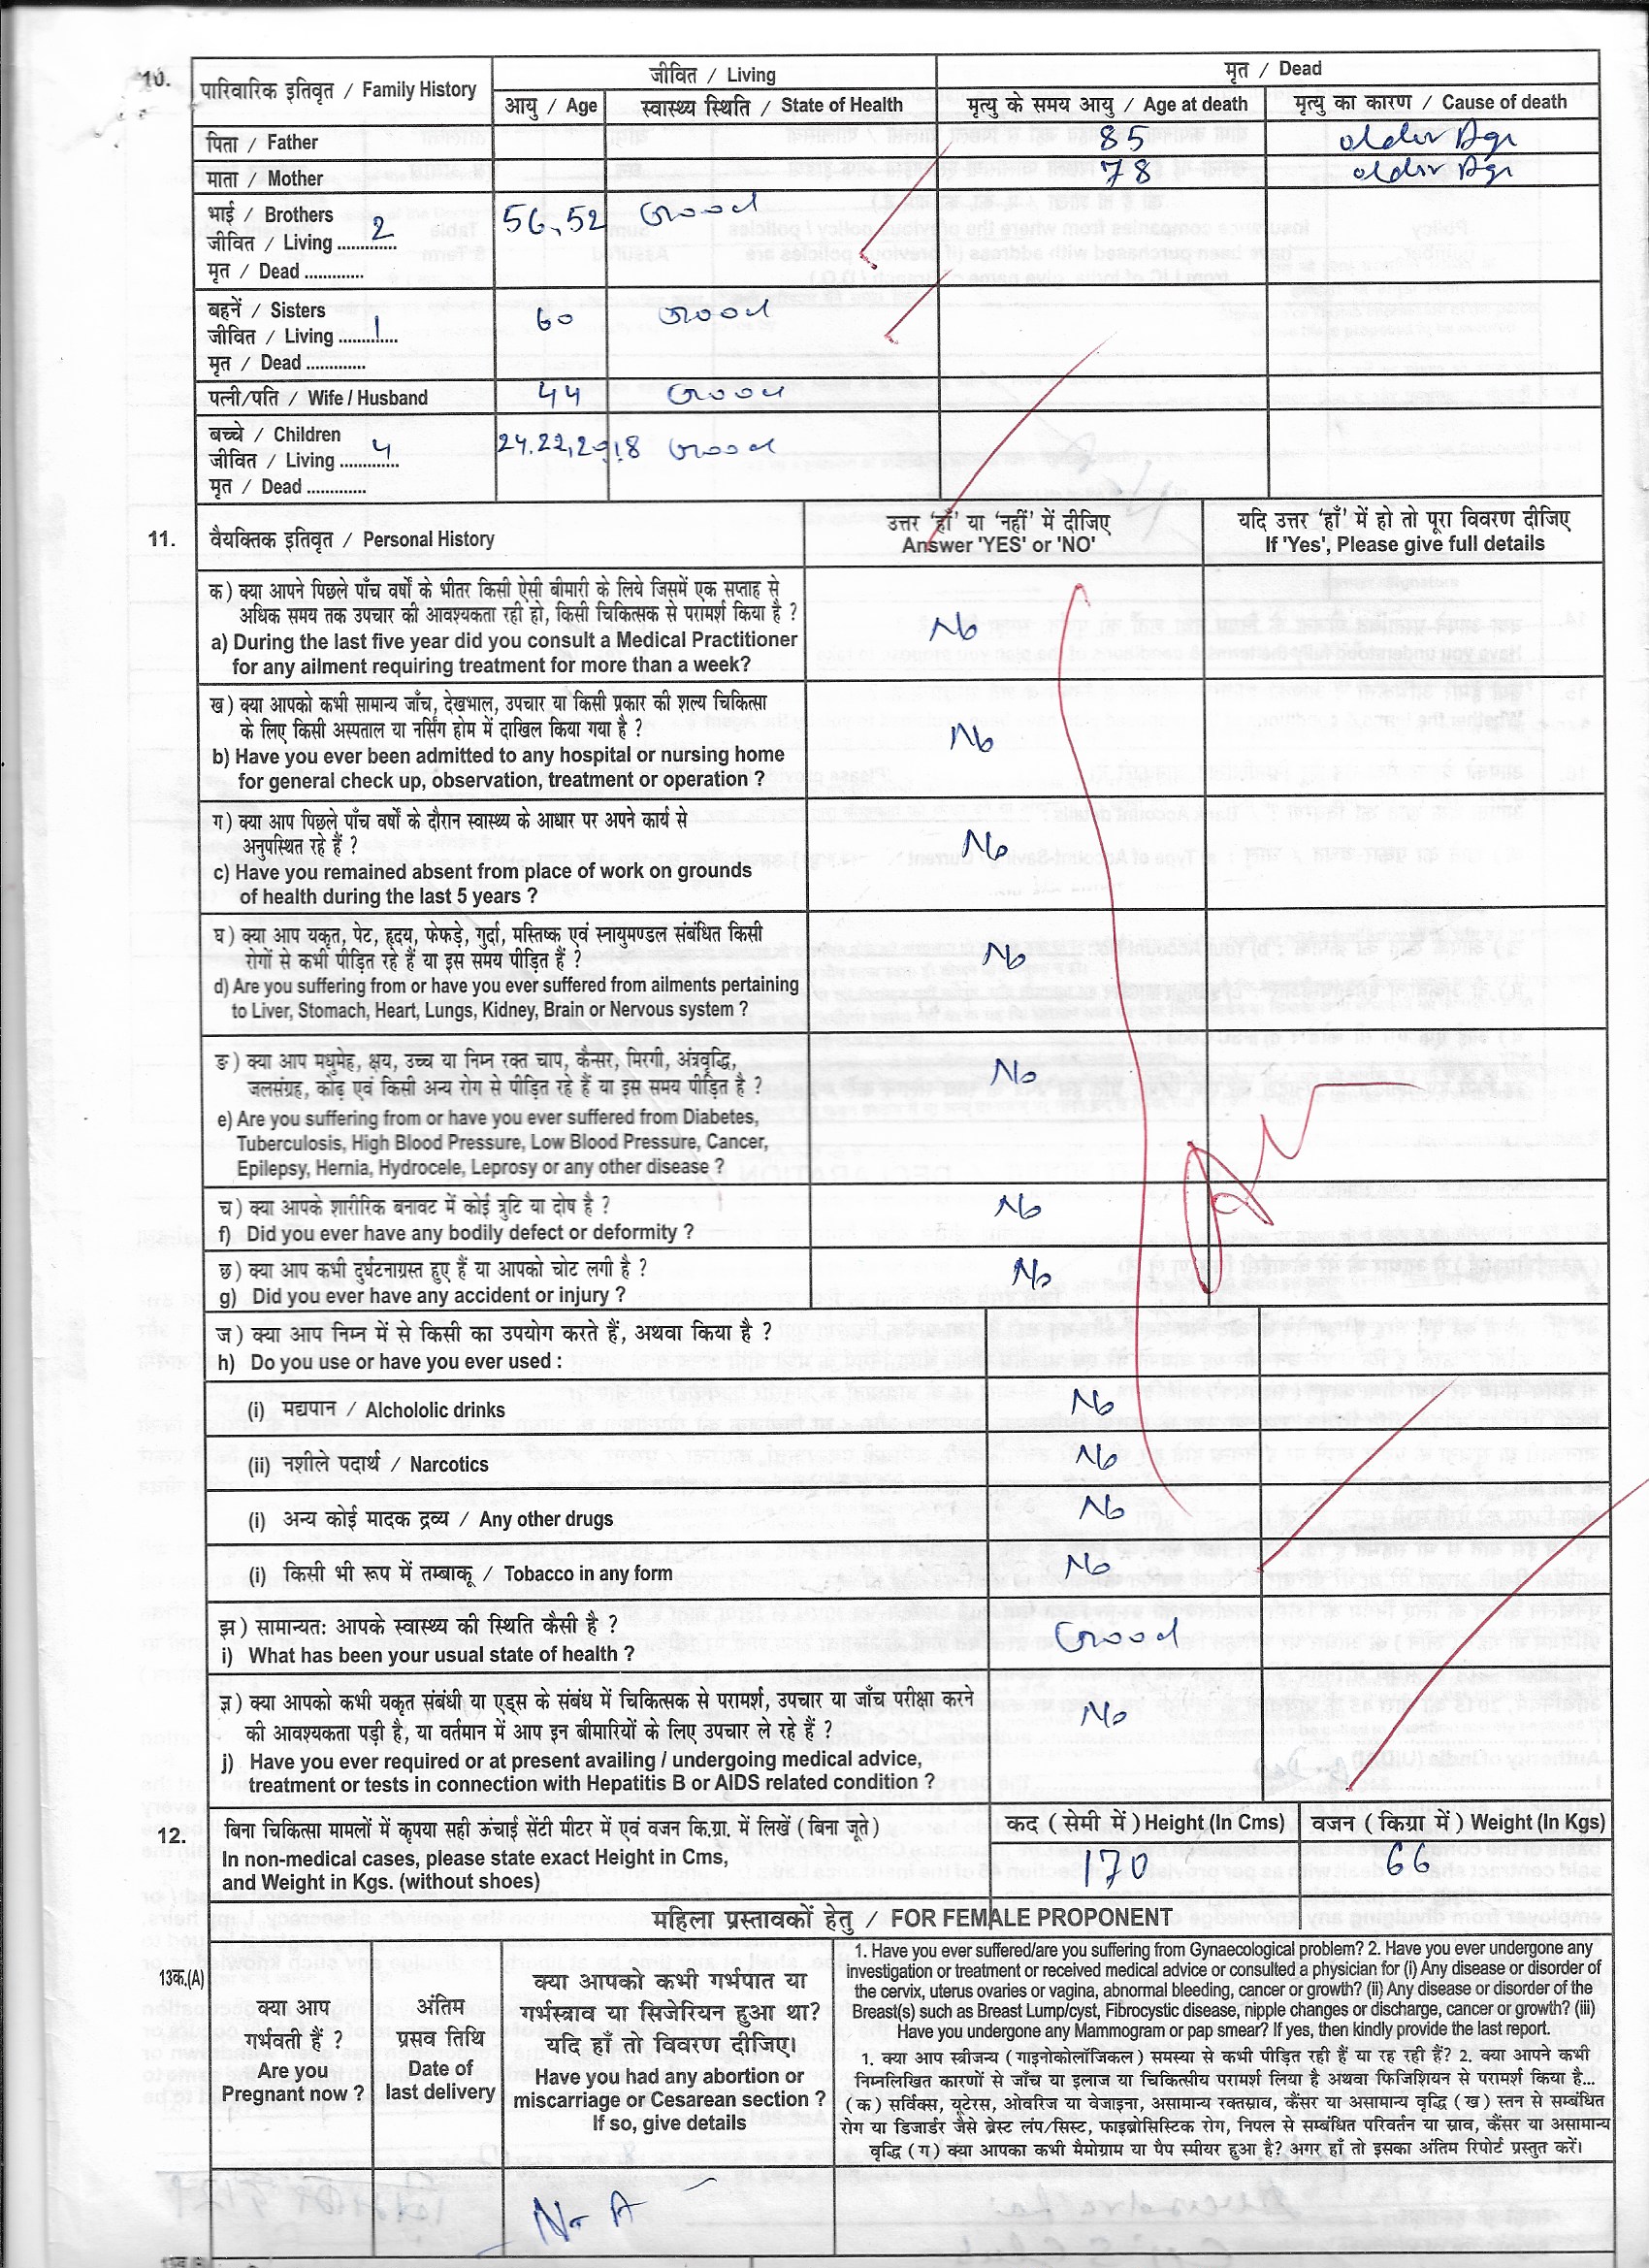 10.
पारिवारिक इतिवृत / Family History
जीवित / Living
मृत / Dead
आयु / Age
स्वास्थ्य स्थिति / State of Health
मृत्यु के समय आयु / Age at death
मृत्यु का कारण / Cause of death
पिता / Father
85
older Age
माता / Mother
78
older Age
भाई / Brothers
जीवित / Living ..2..
मृत / Dead ............
56, 52
Good
बहनें / Sisters
जीवित / Living ..1..
मृत / Dead ............
60
Good
पत्नी/पति / Wife / Husband
44
Good
बच्चे / Children
जीवित / Living ..4..
मृत / Dead ............
24, 22, 20, 18
Good
11.
वैयक्तिक इतिवृत / Personal History
उत्तर 'हाँ' या 'नहीं' में दीजिए
Answer 'YES' or 'NO'
यदि उत्तर 'हाँ' में हो तो पूरा विवरण दीजिए
If 'Yes', Please give full details
क) क्या आपने पिछले पाँच वर्षों के भीतर किसी ऐसी बीमारी के लिये जिसमें एक सप्ताह से
अधिक समय तक उपचार की आवश्यकता रही हो, किसी चिकित्सक से परामर्श किया है ?
a) During the last five year did you consult a Medical Practitioner
for any ailment requiring treatment for more than a week?
No
ख) क्या आपको कभी सामान्य जाँच, देखभाल, उपचार या किसी प्रकार की शल्य चिकित्सा
के लिए किसी अस्पताल या नर्सिंग होम में दाखिल किया गया है ?
b) Have you ever been admitted to any hospital or nursing home
for general check up, observation, treatment or operation ?
No
ग) क्या आप पिछले पाँच वर्षों के दौरान स्वास्थ्य के आधार पर अपने कार्य से
अनुपस्थित रहे हैं ?
c) Have you remained absent from place of work on grounds
of health during the last 5 years ?
No
घ) क्या आप यकृत, पेट, हृदय, फेफड़े, गुर्दा, मस्तिष्क एवं स्नायुमण्डल संबंधित किसी
रोगों से कभी पीड़ित रहे हैं या इस समय पीड़ित हैं ?
d) Are you suffering from or have you ever suffered from ailments pertaining
to Liver, Stomach, Heart, Lungs, Kidney, Brain or Nervous system ?
No
ङ) क्या आप मधुमेह, क्षय, उच्च या निम्न रक्त चाप, कैन्सर, मिरगी, अंत्रवृद्धि,
जलसंग्रह, कोढ़ एवं किसी अन्य रोग से पीड़ित रहे हैं या इस समय पीड़ित है ?
e) Are you suffering from or have you ever suffered from Diabetes,
Tuberculosis, High Blood Pressure, Low Blood Pressure, Cancer,
Epilepsy, Hernia, Hydrocele, Leprosy or any other disease ?
No
च) क्या आपके शारीरिक बनावट में कोई त्रुटि या दोष है ?
f) Did you ever have any bodily defect or deformity ?
No
छ) क्या आप कभी दुर्घटनाग्रस्त हुए हैं या आपको चोट लगी है ?
g) Did you ever have any accident or injury ?
No
ज) क्या आप निम्न में से किसी का उपयोग करते हैं, अथवा किया है ?
h) Do you use or have you ever used :
(i) मद्यपान / Alchololic drinks
No
(ii) नशीले पदार्थ / Narcotics
No
(i) अन्य कोई मादक द्रव्य / Any other drugs
No
(i) किसी भी रूप में तम्बाकू / Tobacco in any form
No
झ) सामान्यतः आपके स्वास्थ्य की स्थिति कैसी है ?
i) What has been your usual state of health ?
Good
ञ) क्या आपको कभी यकृत संबंधी या एड्स के संबंध में चिकित्सक से परामर्श, उपचार या जाँच परीक्षा करने
की आवश्यकता पड़ी है, या वर्तमान में आप इन बीमारियों के लिए उपचार ले रहे हैं ?
j) Have you ever required or at present availing / undergoing medical advice,
treatment or tests in connection with Hepatitis B or AIDS related condition ?
No
12.
बिना चिकित्सा मामलों में कृपया सही ऊंचाई सेंटी मीटर में एवं वजन कि.ग्रा. में लिखें (बिना जूते)
In non-medical cases, please state exact Height in Cms,
and Weight in Kgs. (without shoes)
कद (सेमी में) Height (In Cms)
वजन (किग्रा में) Weight (In Kgs)
170
66
महिला प्रस्तावकों हेतु / FOR FEMALE PROPONENT
13क.(A)
क्या आप
गर्भवती हैं ?
Are you
Pregnant now ?
अंतिम
प्रसव तिथि
Date of
last delivery
क्या आपको कभी गर्भपात या
गर्भस्त्राव या सिजेरियन हुआ था?
यदि हाँ तो विवरण दीजिए।
Have you had any abortion or
miscarriage or Cesarean section ?
If so, give details
1. Have you ever suffered/are you suffering from Gynaecological problem? 2. Have you ever undergone any
investigation or treatment or received medical advice or consulted a physician for (i) Any disease or disorder of
the cervix, uterus ovaries or vagina, abnormal bleeding, cancer or growth? (ii) Any disease or disorder of the
Breast(s) such as Breast Lump/cyst, Fibrocystic disease, nipple changes or discharge, cancer or growth? (iii)
Have you undergone any Mammogram or pap smear? If yes, then kindly provide the last report.
1. क्या आप स्त्रीजन्य (गाइनोकोलॉजिकल) समस्या से कभी पीड़ित रही हैं या रह रही हैं? 2. क्या आपने कभी
निम्नलिखित कारणों से जाँच या इलाज या चिकित्सीय परामर्श लिया है अथवा फिजिशियन से परामर्श किया है...
(क) सर्विक्स, यूटेरस, ओवरिज या वेजाइना, असामान्य रक्तस्राव, कैंसर या असामान्य वृद्धि (ख) स्तन से सम्बंधित
रोग या डिजार्डर जैसे ब्रेस्ट लंप/सिस्ट, फाइब्रोसिस्टिक रोग, निपल से सम्बंधित परिवर्तन या स्राव, कैंसर या असामान्य
वृद्धि (ग) क्या आपका कभी मैमोग्राम या पैप स्मीयर हुआ है? अगर हाँ तो इसका अंतिम रिपोर्ट प्रस्तुत करें।
N. A